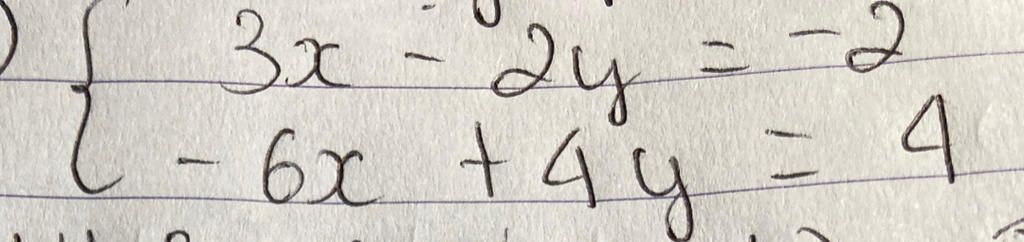 3x - 2y = -2
-6x + 4y = 4